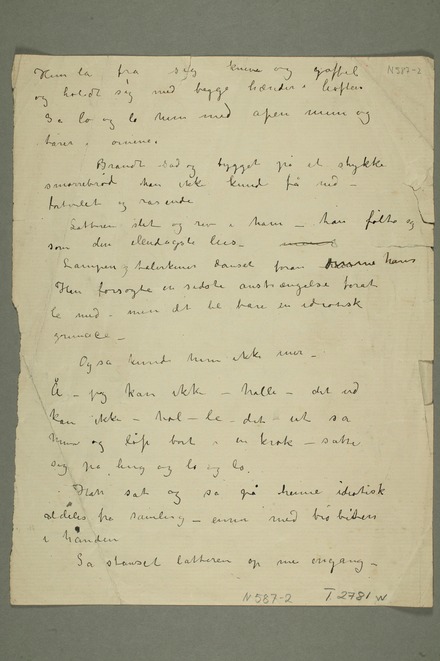 N587-2
Hun la fra sig kniv og gaffel
og holdt sig med begge hænder i hoften
Så lo og lo hun med åpen mun og
tårer i øinene.
Brandt sad og tygget på et stykke
smørrebrød han ikke kund få ned –
fortvilet og rasende
Latteren slet og rev i ham – han følte sig
som den elendigste
Lampen og talerkener danset foran hans
Han forsøgte en sidste anstrængelse forat
le med – men det ble bare en idiotisk
grimace –
Også kunde hun ikke mer –
Å – jeg kan ikke – halle – det ud
kan ikke – hol – le – det – ut sa
hun og løp bort i en krok – satte
sig på hug og lo og lo.
Han sat og så på henne idiotisk
aldeles fra samling – ennu med
i hånden
Så stanset latteren op me engang –
N 587-2
T 2781